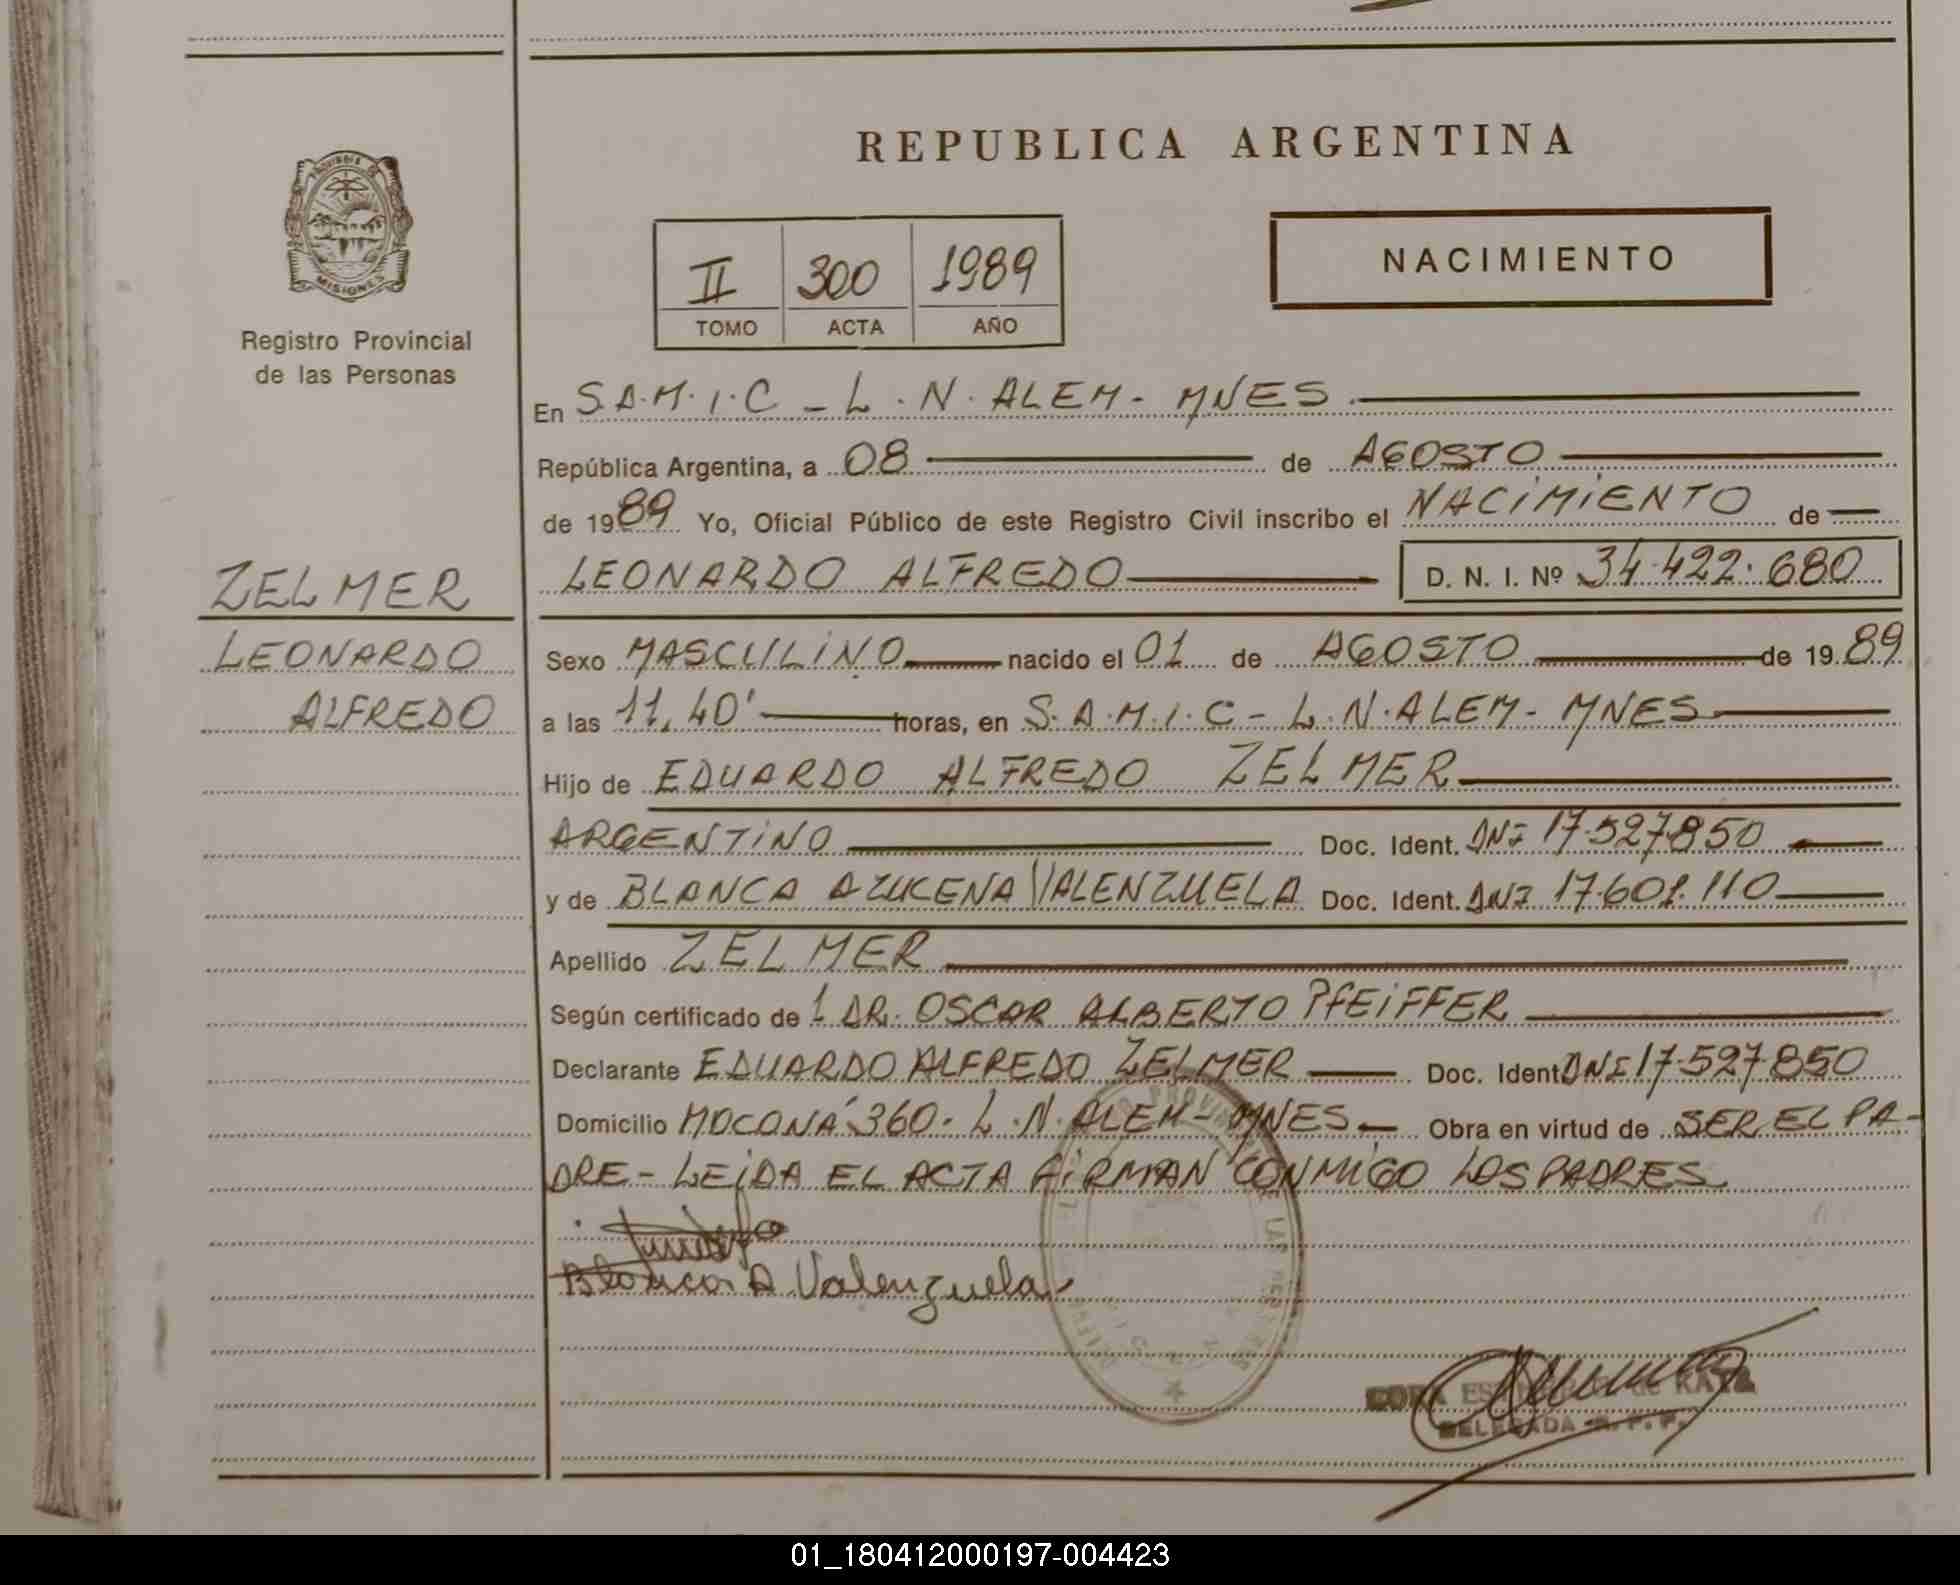 REPUBLICA ARGENTINA
NACIMIENTO
II 300 1989
TOMO ACTA AÑO
MISIONES
Registro Provincial
de las Personas
ZELMER
LEONARDO
ALFREDO
En S.A.M.I.C - L.N. ALEM - MNES.
República Argentina, a 08 de AGOSTO
de 1989 Yo, Oficial Público de este Registro Civil inscribo el NACIMIENTO de
LEONARDO ALFREDO D. N. I. Nº 34.422.680
Sexo MASCULINO nacido el 01 de AGOSTO de 1989
a las 11,40' horas, en S.A.M.I.C - L.N. ALEM - MNES
Hijo de EDUARDO ALFREDO ZELMER
ARGENTINO Doc. Ident. DNI 17.527.850
y de BLANCA AZUCENA VALENZUELA Doc. Ident. DNI 17.601.110
Apellido ZELMER
Según certificado de 1 DR. OSCAR ALBERTO PFEIFFER
Declarante EDUARDO ALFREDO ZELMER Doc. Ident DNI 17.527.850
Domicilio MOCONÁ 360. L.N. ALEM - MNES - Obra en virtud de SER EL PA-
DRE - LEIDA EL ACTA FIRMAN CONMIGO LOS PADRES
Blanca A Valenzuela
DELEGADA R. P. P.
01_180412000197-004423